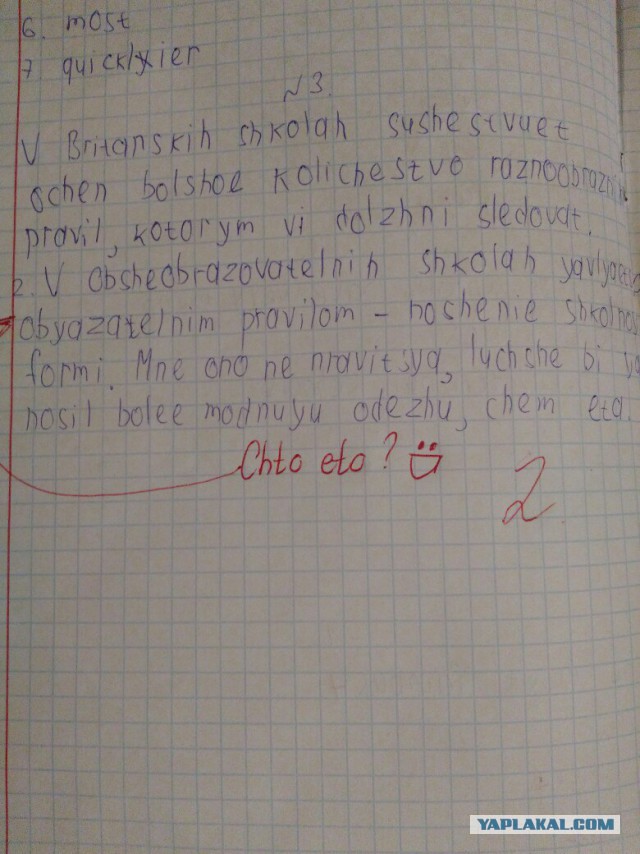 6. most
7 quicklyxier
№3.
V Britanskih shkolah sushestvuet
ochen bolshoe kolichestvo
pravil, kotorym vi dolzhni sledovat.
2. V obsheobrazovatelnih shkolah
obyazatelnim pravilom - noshenie
formi. Mne ono ne nravitsya, luchshe bi ya
nosil bolee modnuyu odezhu, chem eta.
Chto eto?
2
YAPLAKAL.COM